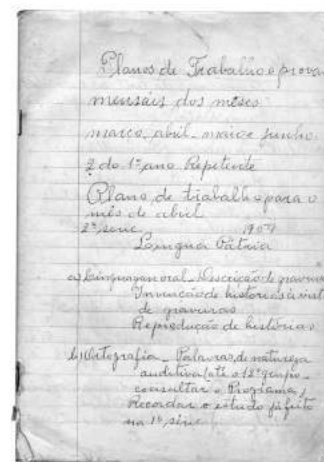 Planos de Trabalho e provas
mensais dos mêses
março, abril, maio e junho.
2 do 1º ano Repetente
Plano de trabalho para o
mês de abril
2ª série
Língua Pátria
a) Linguagem oral - Descrição de gravuras
Invenção de histórias à vista
de gravuras
Reprodução de histórias
b) Ortografia - Palavras de natureza
auditiva (até o 12º grupo -
consultar o Programa)
Recordar o estudo já feito
na 1ª série